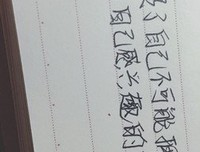 了自己不可能
自己感兴趣的